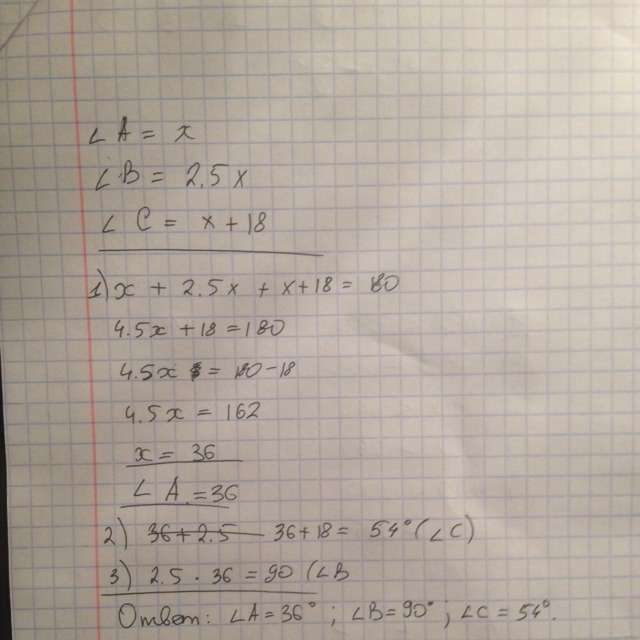 ∠A = x
∠B = 2.5x
∠C = x + 18
1) x + 2.5x + x + 18 = 180
4.5x + 18 = 180
4.5x = 180 - 18
4.5x = 162
x = 36
∠A = 36
2) 36 + 2.5 36 + 18 = 54° (∠C)
3) 2.5 · 36 = 90 (∠B
Ответ: ∠A = 36° ; ∠B = 90° ; ∠C = 54°.